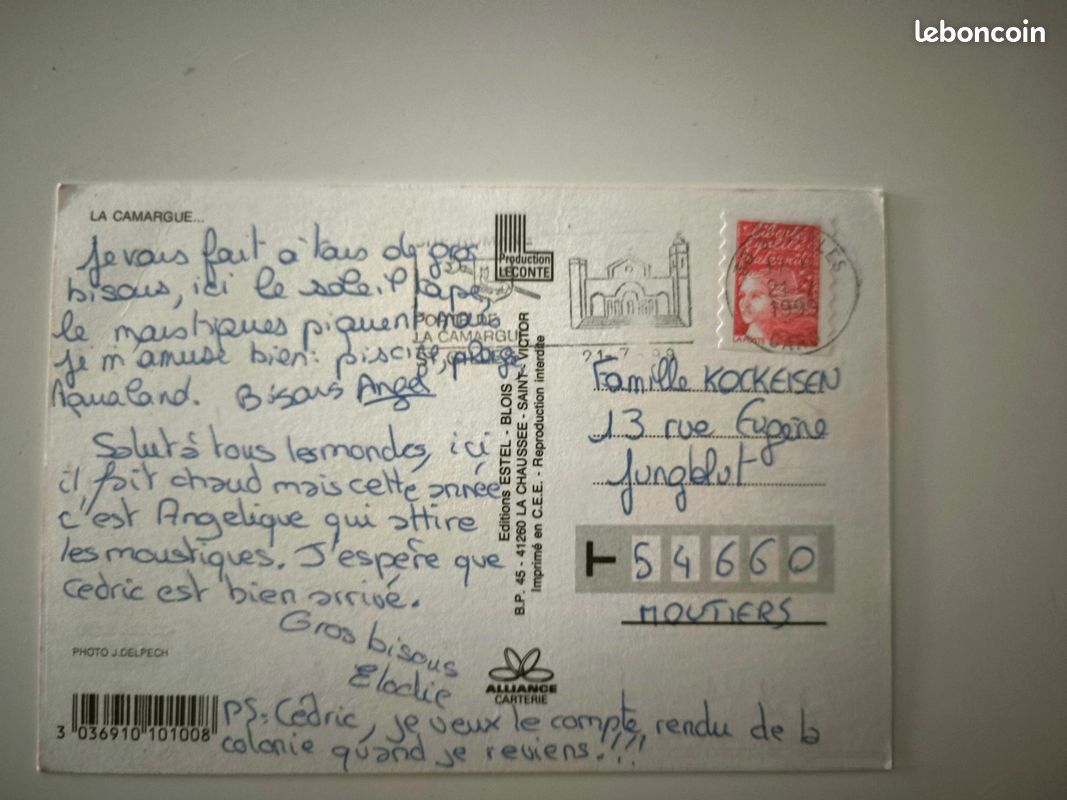 leboncoin
LA CAMARGUE...
Je vous fait à tous de gros
bisous, ici le soleil tape,
le moustiques piquent mais
je m'amuse bien: piscine, plage,
Aqualand. Bisous Angel
Salut à tous lesmondes, ici
il fait chaud mais cette année
c'est Angelique qui attire
les moustiques. J'espère que
Cédric est bien arrivé.
Gros bisous
Elodie
PS: Cédric, je veux le compte rendu de la
colonie quand je reviens!!!
PHOTO J.DELPECH
3 036910 101008
Production
LECONTE
Editions ESTEL - BLOIS
B.P. 45 - 41260 LA CHAUSSEE - SAINT - VICTOR
Imprimé en C.E.E. - Reproduction interdite
ALLIANCE
CARTERIE
LA CAMARGUE
21-7-99
1999
Liberté
Égalité
Fraternité
LA POSTE
Famille KOCKEISEN
13 rue Eugène
Jungblut
T 54660
MOUTIERS